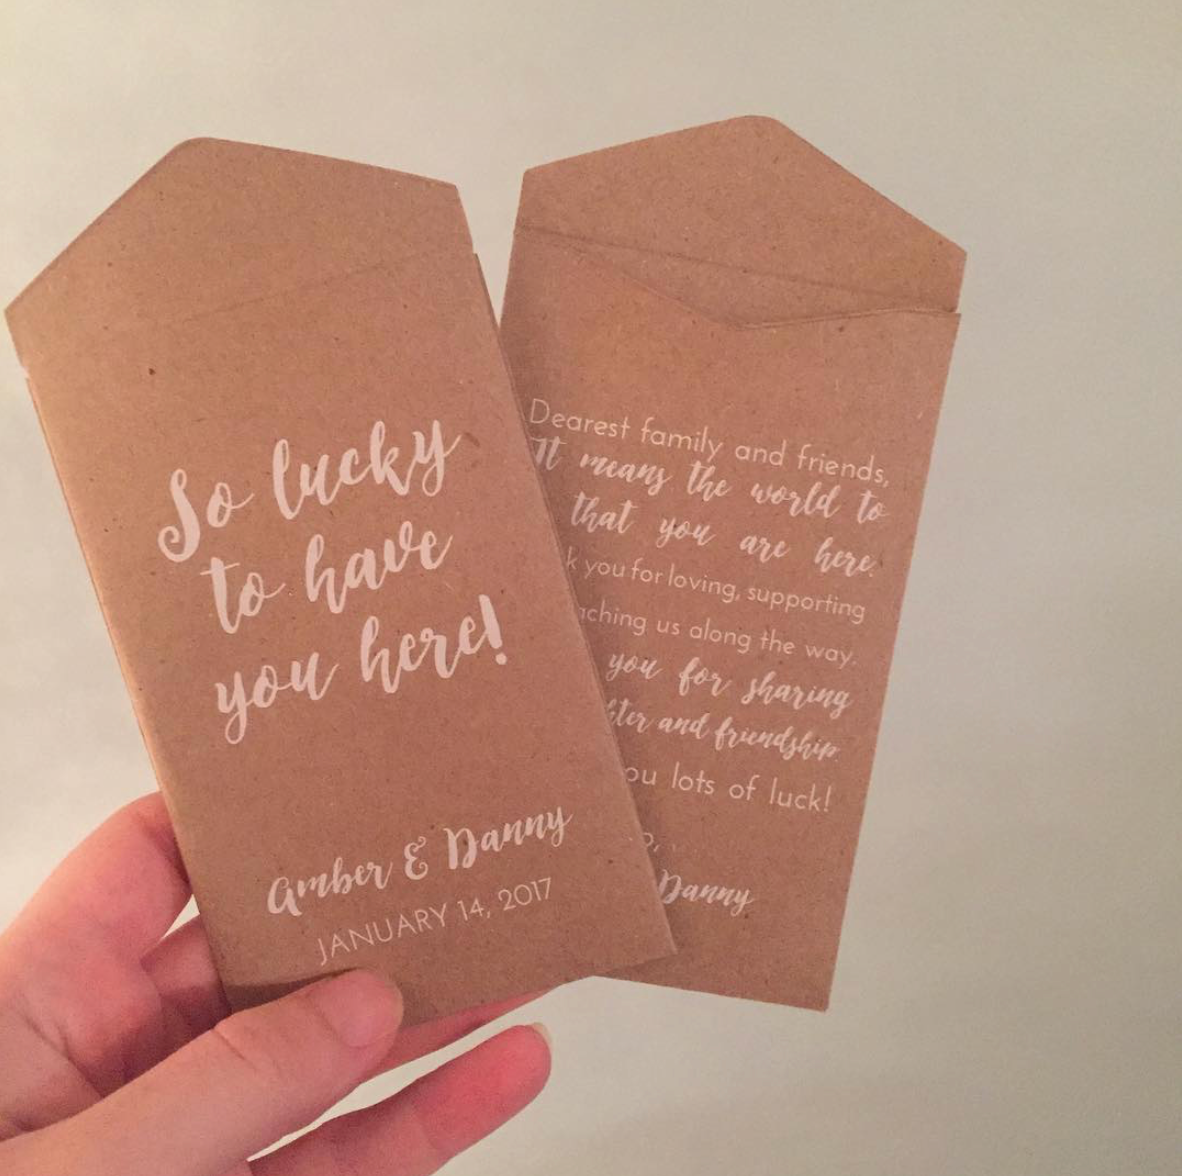 So lucky
to have
you here!
Amber & Danny
JANUARY 14, 2017
Dearest family and friends,
It means the world to
that you are here.
you for loving, supporting
us along the way.
you for sharing
and friendship.
lots of luck!
Danny